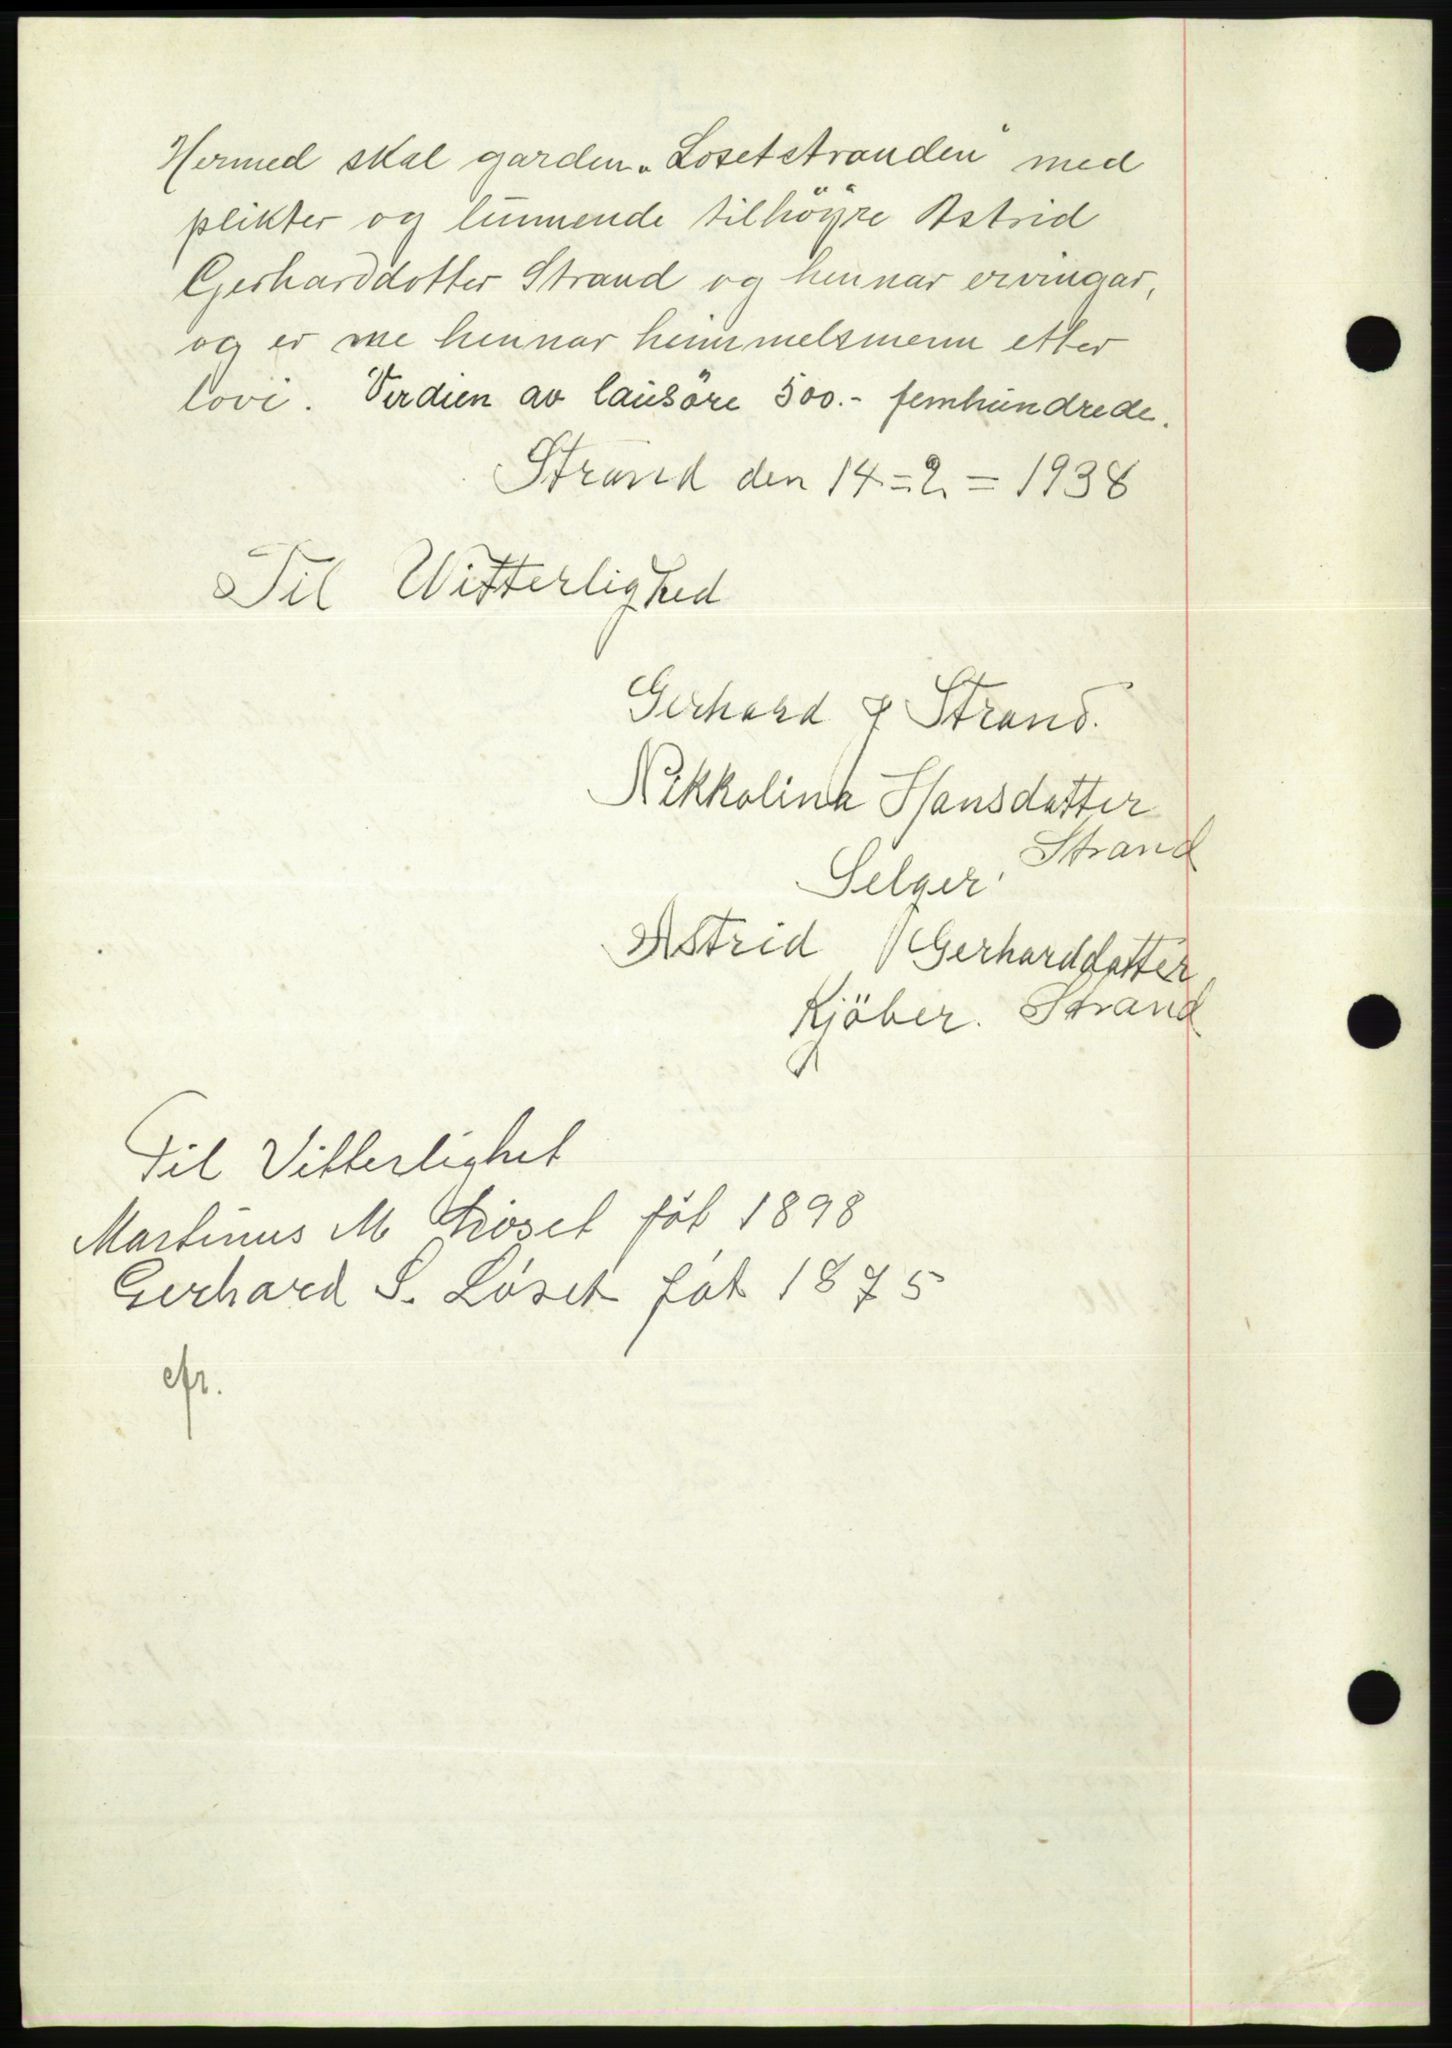 Hermed skal garden „Losetstranden" med
plikter og lunnende tilhöyre Astrid
Gerharddotter Strand og hennar ervingar,
og er me hennar heimmelsmenn etter
lovi. Verdien av lausöre 500.- femhundrede.
Strand den 14=2.=1938
Til Witterlighed
Gerhard Strand.
Nikkolina Hansdatter
Strand
Selger.
Astrid Gerharddatter
Kjöber. Strand
Til Vitterlighet
Martinus M Löset föt 1898
Gerhard S. Löset föt 1875
cfr.